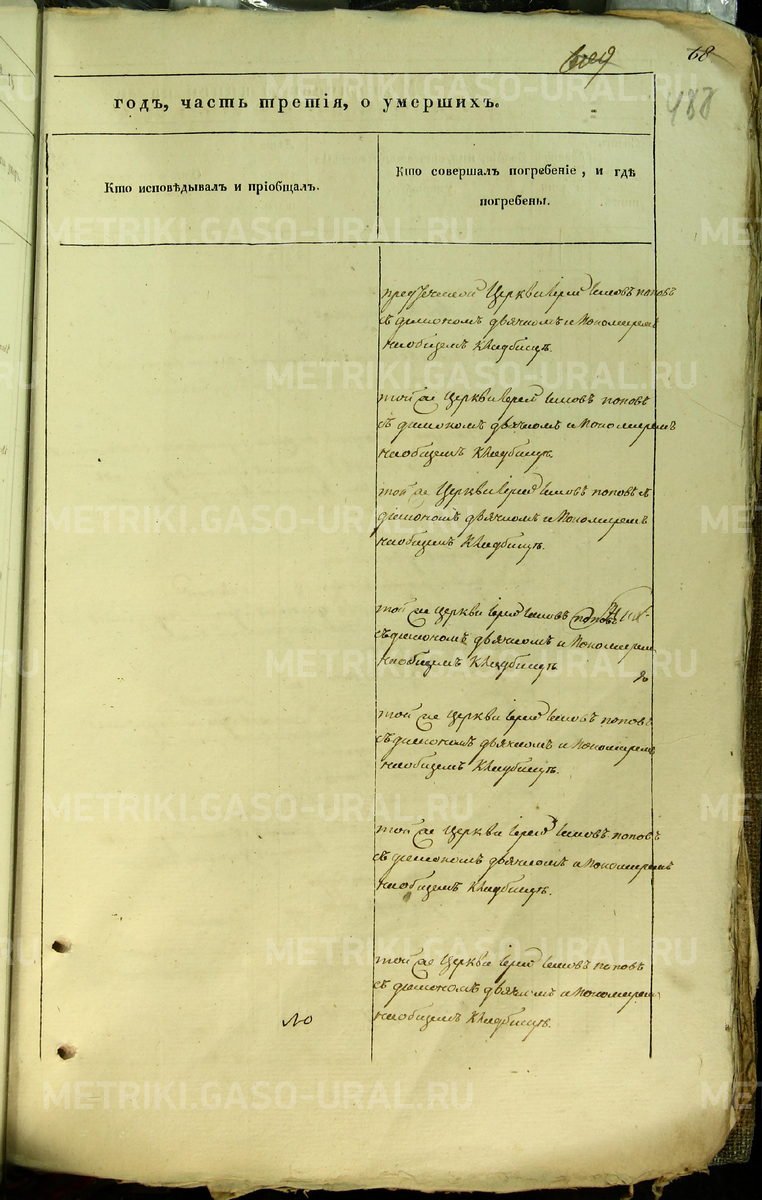 68
488
годъ, часть третія, о умершихъ.
Кто исповѣдывалъ и пріобщалъ.
Кто совершалъ погребеніе, и гдѣ
погребены.
Церкви Іерей Іаковъ поповъ
съ діакономъ дьячкомъ и Пономаремъ
на общемъ Кладбищѣ.
той же Церкви Іерей Іаковъ поповъ
съ діакономъ дьячкомъ и Пономаремъ
на общемъ Кладбищѣ.
той же Церкви Іерей Іаковъ поповъ съ
діакономъ дьячкомъ и Пономаремъ
на общемъ Кладбищѣ.
той же Церкви Іерей Іаковъ поповъ
съ діакономъ дьячкомъ и Пономаремъ
на общемъ Кладбищѣ
той же Церкви Іерей Іаковъ поповъ
съ діакономъ дьячкомъ и Пономаремъ
на общемъ Кладбищѣ.
той же Церкви Іерей Іаковъ поповъ
съ діакономъ дьячкомъ и Пономаремъ
на общемъ Кладбищѣ.
той же Церкви Іерей Іаковъ поповъ
съ діакономъ дьячкомъ и Пономаремъ
на общемъ Кладбищѣ.
METRIKI.GASO-URAL.RU